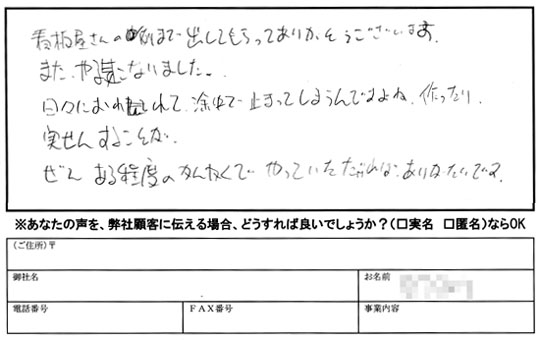 看板屋さんの例まで出してもらってありがとうございます。
また、やる気になりました。
日々におわれて、途中で止まってしまうんですよね、作ったり、
実せんすることが。
ぜひ、ある程度のかんかくで やっていただければ、ありがたいです。
※あなたの声を、弊社顧客に伝える場合、どうすれば良いでしょうか?(□実名 □匿名)ならOK
(ご住所)〒
御社名 お名前
電話番号 FAX番号 事業内容